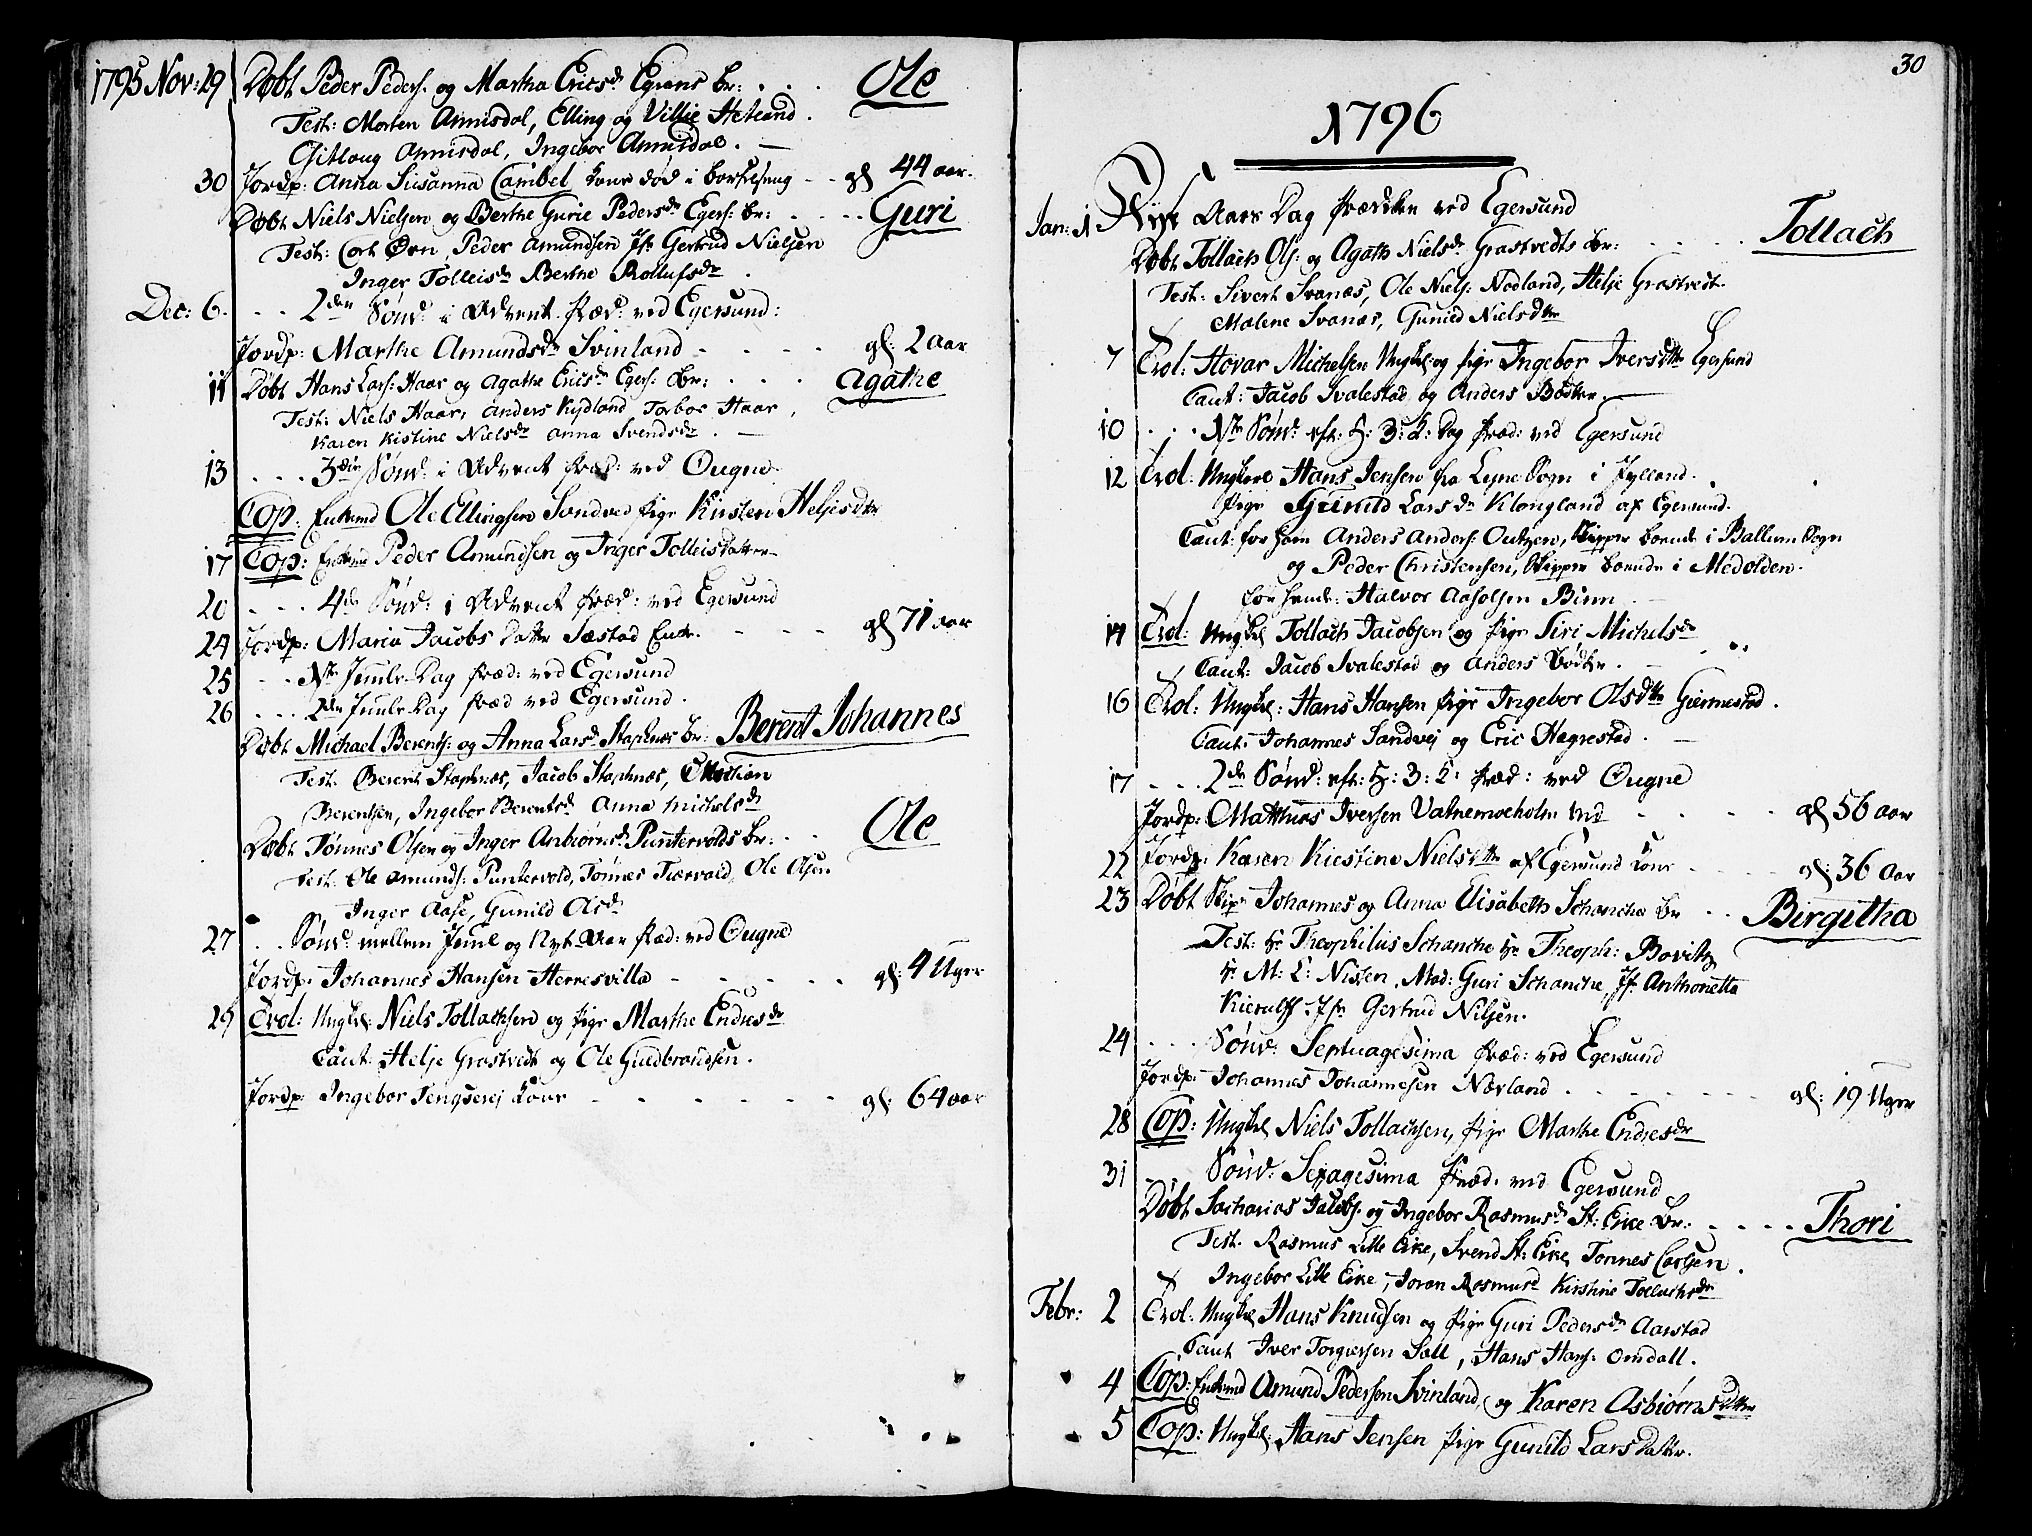 1795 Nov: 29 Døbt Peder Peders. og Martha Ericsdr Egrans br: . . . Ole
Test: Morten Annisdal, Elling og Villie Hetland.
Gitlaug Annisdal, Ingebor Annisdal. —
30 Jordp: Anna Susanna Cambel kone død i barselseng - - gl 44 aar.
Døbt Niels Nielsen og Berthe Gurie Pedersdr Egers: br: - - - - Guri
Test: Cort Ørn, Peder Amundsen Jfr Gertrud Nielsen
Inger Tolleisdr Berthe Rollufsdr.
Dec: 6. - - 2den Sønd: i Advent præd: ved Egersund:
Jordp: Marthe Amundsdr Svinland - - - - gl: 2 Aar
11 Døbt Hans Lars: Haar og Agathe Ericsdr Egers: br: - - - - Agathe
Test: Niels Haar, Anders Kydland, Torbor Haar,
Karen Kistine Nielsdr Anna Svendsdr. —
13 . . . 3die Sønd: i Advent præd: ved Ougne
Cop: Enkemd Ole Ellingsen Sandved pige Kirsten Heljesdtr
17 Cop: Enkem Peder Amundsen og Inger Tolleisdatter
20 - - - 4de Sønd: i Advent præd: ved Egersund
24 Jordp: Maria Jacobs datter Sæstad Enke. - - - - gl 71 aar
25 - - - 1ste Juule-Dag præd: ved Egersund
26 . . . 2den Juule-Dag præd ved Egersund.
Døbt Michael Berents: og Anna Larsdr Stapnæs br: Berent Johannes
Test: Berent Stapnæs, Jacob Stapnæs, Christian
Berentsen, Ingebor Berentsdr Anna Michelsdr
Døbt Tønnes Olsen og Inger Anbiørnsdr Puntervolds br: - - Ole
Test: Ole Amunds: Puntervold, Tønnes Tiærvald, Ole Olsen
Inger Aase, Gunild Asdr
27 . . Sønd: mellem Juul og Nyt Aar præd: ved Ougne
Jordp: Johannes Hansen Herresvilla - - - - - gl: 4 Uger
29 Trol: Ungkl: Niels Tollachsen og pige Marthe Endresdr
Caut: Helje Grastvedt og Ole Guldbrandsen.
Jordp: Ingebor Tengsevej Kone - - - - - - gl: 64 aar
30
1796
Jan: 1 Nyt Aars Dag prædiken ved Egersund
Døbt Tollach Ols: og Agath Nielsdr Grastvedts br: - - - - - Tollach
Test: Sivert Svanæs, Ole Niels: Nodland, Helje Grastvedt.
Malene Svanæs, Gunild Nielsdtr
7 Trol: Hovar Michelsen Ungkl og pige Ingebor Iversdtr Egersund
Caut: Jacob Svalestad og Anders Bødker. —
10 . . . 1ste Sønd: eft: H: 3: K: Dag præd: ved Egersund
12 Trol: Ungkere Hans Jensen fra Lejne Sogn i Jylland.
pige Gunild Larsdr Klongland af Egersund.
Caut: for ham Anders Anders: Outzen, Skipper boende i Ballum Sogn
og Peder Christensen, Skipper boende i Medolden.
for hende: Halvor Aasolsen Birn. —
14 Trol: Ungkl Tollach Jacobsen og pige Siri Michelsdr
Caut: Jacob Svalestad og Anders Bødker. —
16 Trol: Ungkl: Hans Hansen pige Ingebor Olsdtr Giermestad.
Caut: Johannes Sandvej og Eric Hægrestad. —
17 - - . 2den Sønd: eft: H: 3: K: præd: ved Ougne
Jordp: Matthias Iversen Vatnemoeholm - - - - - gl 56 aar
22 Jordp: Karen Kiestine Nielsdtr af Egersund Kone - - - - gl: 36 Aar
23 Døbt Skip: Johannes og Anna Elisabeth Schanche br - - Birgitha
Test: Hr Theophilus Schanche Hr Theoph: Bovitz
Hr M: C: Nissen, Mad: Guri Schanche, Jf: Anthonetta
Kierulff. Jfr Gertrud Nilsen.
24 . . . Sønd: Septuagesima præd: ved Egersund
Jordp: Johannes Johannesen Nævland - - - - - - gl: 19 Uger
28 Cop: Ungkl Niels Tollachsen, pige Marthe Endresdr
31 - - Sønd: Sexagesima præd: ved Egersund
Døbt Sacharias Jacobs: og Ingebor Rasmusdr St: Eike br: - - - - Thori
Test: Rasmus Lille Eike, Svend St: Eike, Tønnes Carlsen.
Ingebor Lille Eike, Joran Rasmusd Kirstine Tollachsdr
Febr: 2 Trol: Ungkl Hans Knudsen og pige Guri Pedersdr Aarstad
Caut Iver Torgiersen Sæll, Hans Hans: Omdall.
4 Cop: Enkemd Amund Pedersen Svinland, og Karen Asbiørnsdtter
5 Cop: Ungkl: Hans Jensen pige Gunild Larsdatter.